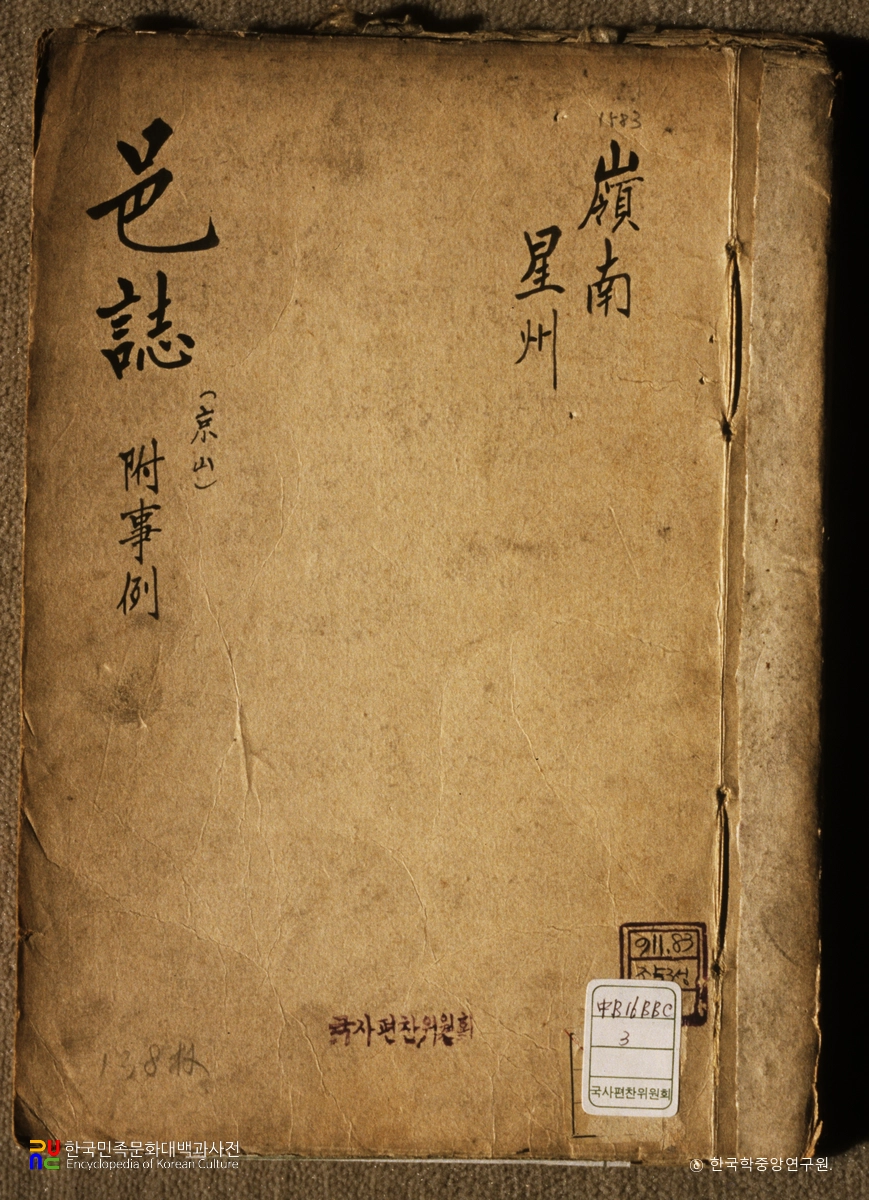 1583
嶺南
星州
邑誌
(京山)
附事例
911.83
中B16BBC
3
국사편찬위원회
국사편찬위원회
한국민족문화대백과사전
Encyclopedia of Korean Culture
한국학중앙연구원.